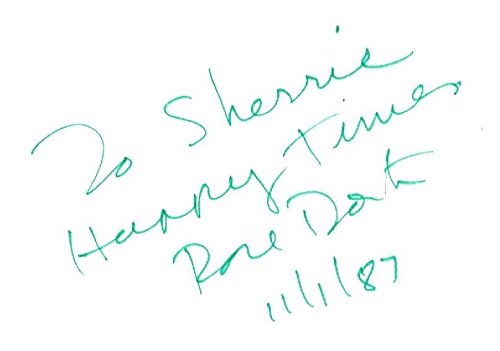 To Sherrie
Happy Times
Rose
11/1/87